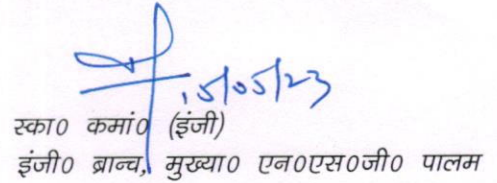 15/05/23
स्का0 कमां0 (इंजी)
इंजी0 ब्रान्च, मुख्या0 एन0एस0जी0 पालम